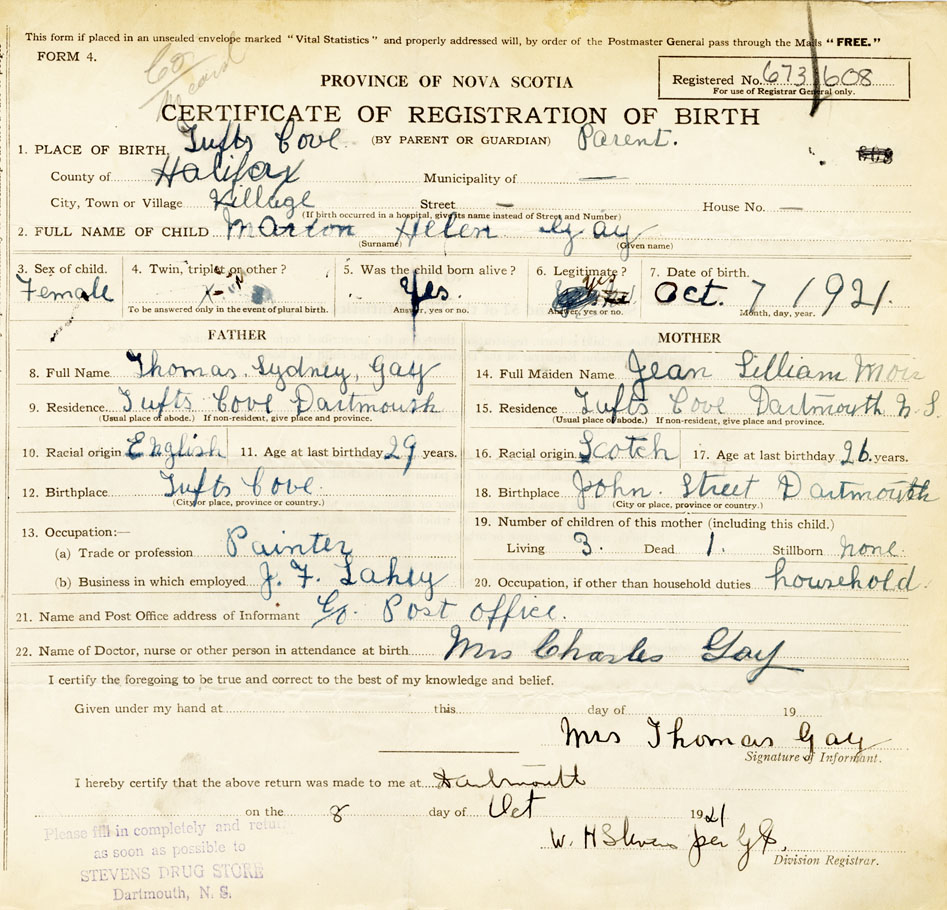 This form if placed in an unsealed envelope marked "Vital Statistics" and properly addressed will, by order of the Postmaster General pass through the Mails "FREE."
FORM 4.
PROVINCE OF NOVA SCOTIA
Registered No. 673 608
For use of Registrar General only.
CERTIFICATE OF REGISTRATION OF BIRTH
(BY PARENT OR GUARDIAN) Parent.
1. PLACE OF BIRTH, Tufts Cove.
County of Halifax Municipality of —
City, Town or Village Village Street — House No. —
(If birth occurred in a hospital, give its name instead of Street and Number)
2. FULL NAME OF CHILD Marion Helen Gay
(Surname) (Given name)
3. Sex of child. 4. Twin, triplet or other? 5. Was the child born alive? 6. Legitimate? 7. Date of birth.
Female Yes. yes Oct. 7 1921.
To be answered only in the event of plural birth. Answer, yes or no. Answer, yes or no. Month, day, year.
FATHER MOTHER
8. Full Name Thomas. Sydney, Gay 14. Full Maiden Name Jean Lilliam
9. Residence Tufts Cove Dartmouth 15. Residence Tufts Cove Dartmouth N.S.
(Usual place of abode.) If non-resident, give place and province. (Usual place of abode.) If non-resident, give place and province.
10. Racial origin English 11. Age at last birthday 29 years. 16. Racial origin Scotch 17. Age at last birthday 26 years.
12. Birthplace Tufts Cove. 18. Birthplace John. Street Dartmouth
(City or place, province or country.) (City or place, province or country.)
13. Occupation:— 19. Number of children of this mother (including this child.)
(a) Trade or profession Painter Living 3. Dead 1. Stillborn none.
(b) Business in which employed J. F. Lahey 20. Occupation, if other than household duties household.
21. Name and Post Office address of Informant Post office.
22. Name of Doctor, nurse or other person in attendance at birth Mrs Charles Gay
I certify the foregoing to be true and correct to the best of my knowledge and belief.
Given under my hand at this day of 19
Mrs Thomas Gay
Signature of Informant.
I hereby certify that the above return was made to me at Dartmouth
on the 8 day of Oct 1921
W. H Stevens per
Division Registrar.
Please fill in completely and return
as soon as possible to
STEVENS DRUG STORE
Dartmouth, N. S.